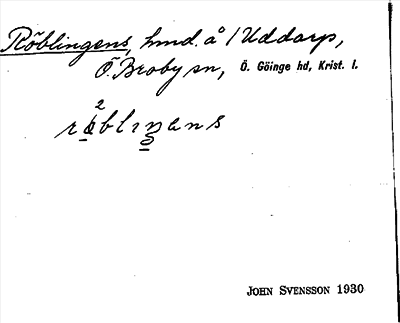 Röblingens, hmd. å Uddarp,
Ö. Broby sn, Ö. Göinge hd, Krist. l.
JOHN SVENSSON 1930